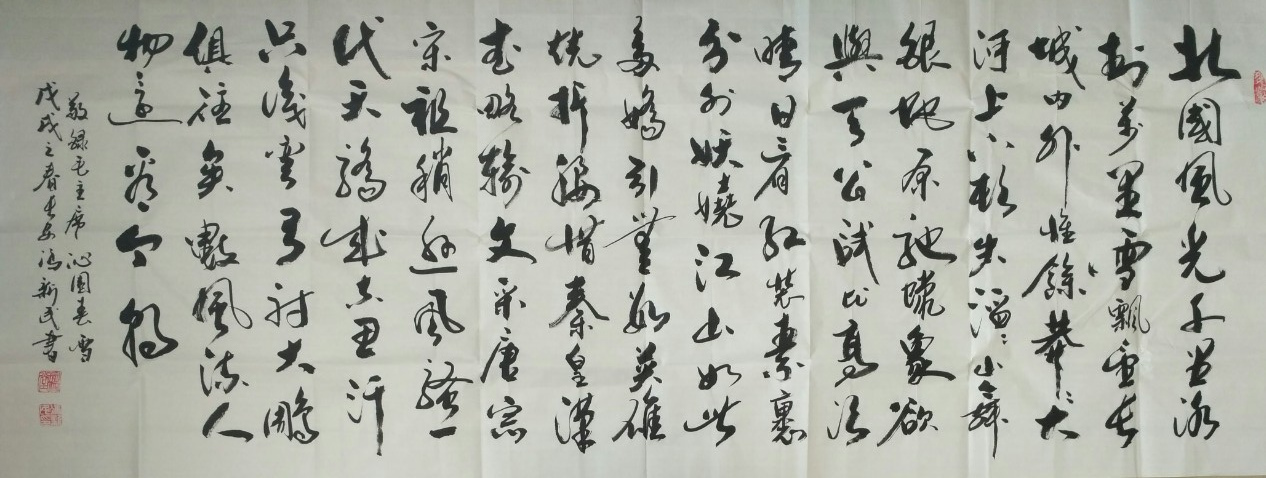 北國風光千里冰
封萬里雪飄望長
城内外惟餘莽〻大
河上下頓失滔〻山舞
銀蛇原馳蠟象欲
與天公試比高須
晴日看紅裝素裹
分外妖嬈江山如此
多嬌引無數英雄
競折腰惜秦皇漢
武略輸文采唐宗
宋祖稍遜風騷一
代天驕成吉思汗
只識彎弓射大鵰
俱往矣數風流人
物還看今朝
敬録毛主席沁園春雪
戊戌之春長安馮新民書